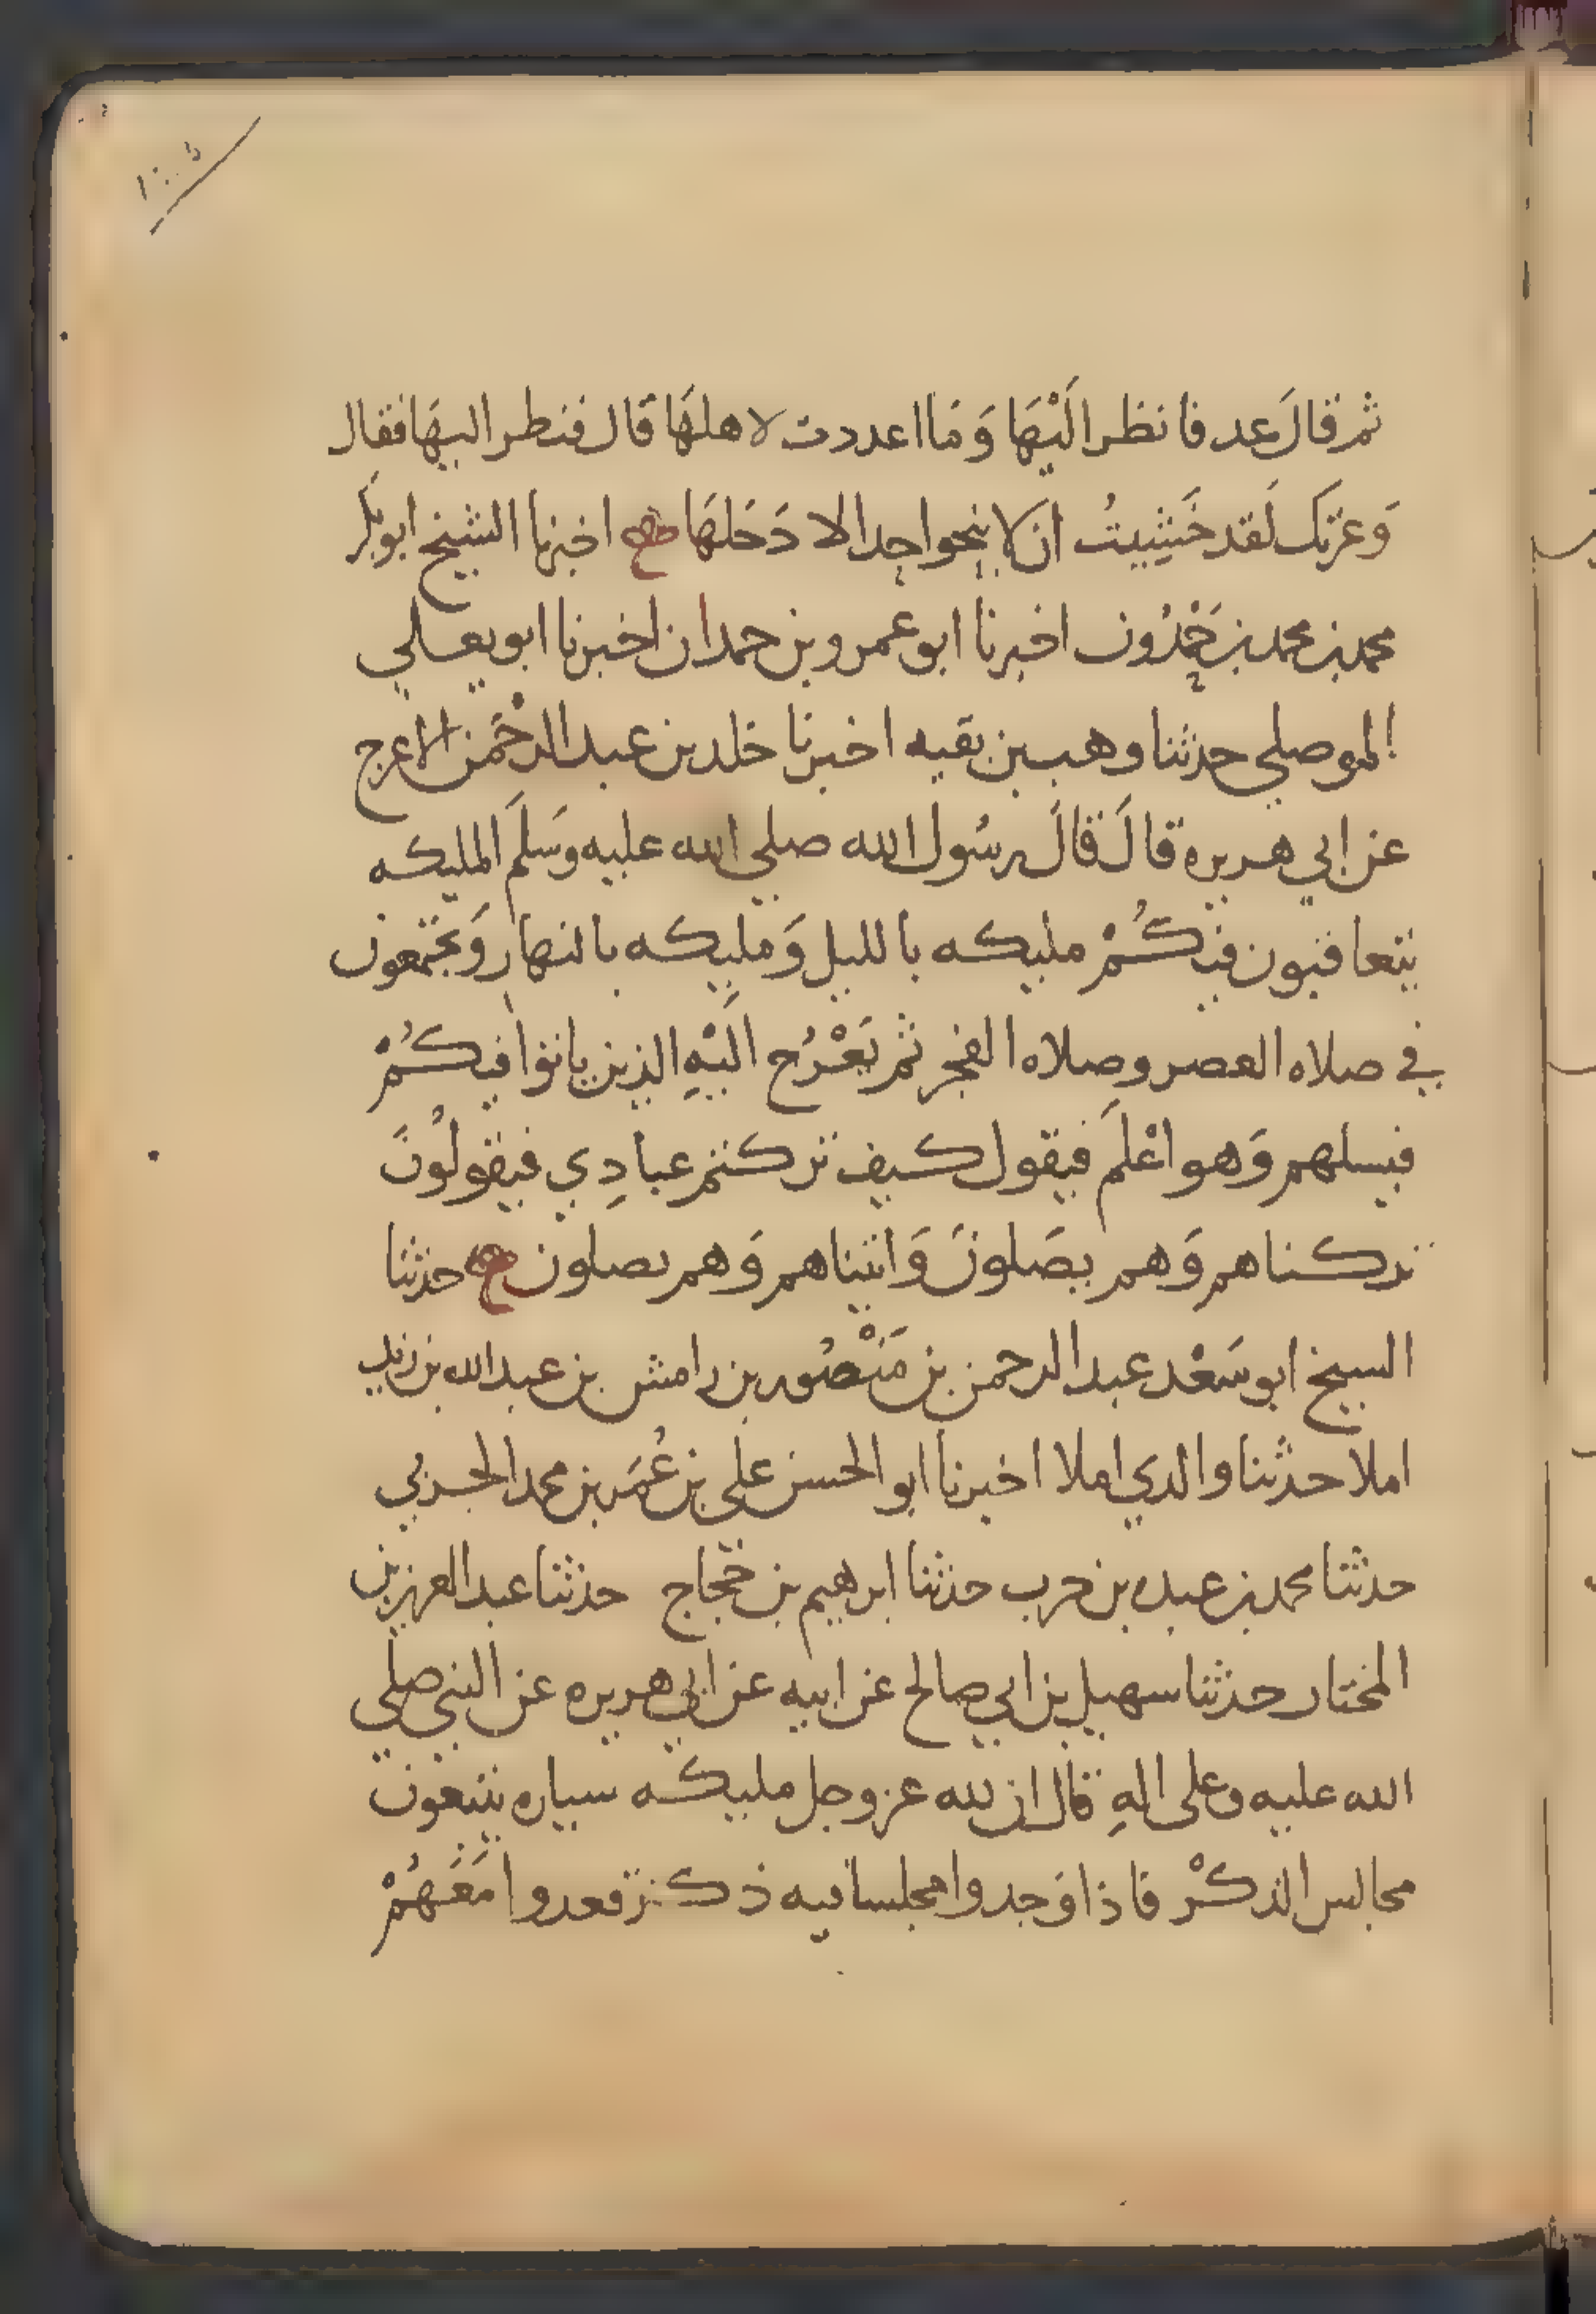 ثم قالَ عد فانظر الَيْهَا وَمَا اعددت لاهلهَا قَال فنظر اليهَا فقال
وَعزتك لَقد خَشِيتُ ان لا ينجو احد الا دَخَلهَا اخبرنا الشيخ ابوبكر
محمد بن محمد بن حَمْدُون اخبرنا ابو عمرو بن حمدان اخبرنا ابو يعلي
الموصلي حدثنا وهب بن بقيه اخبرنا خلد بن عبد الرحْمَن الاعرج
عن ابي هريره قالَ قالَ رسُول الله صلي الله عليه وسَلمَ المليكه
يتعاقبون فيكُمْ مليكه بالليل وَمليكه بالنهار وَيجتمعون
في صلاه العصر وصلاه الفجر ثم يَعْرُج الَيْهِ الذين باتوا فيكُمْ
فيسلهم وَهو اعْلمَ فيقول كيف تركتم عبادِي فيقولُونَ
تركناهم وَهم يصَلونَ وَاتيناهم وَهم يصلون حدثنا
الشيخ ابو سَعْد عبد الرحمن بن مَنْصُور بن رامش بن عبد الله بن زيد
املا حدثنا والدي املا اخبرنا ابو الحسن علي بن عُمَر بن محمد الحربي
حدثنا محمد بن عبده بن حرب حدثنا ابرهيم بن حجاج حدثنا عبد العزيز بن
المختار حدثنا سهيل بن ابي صالح عن ابيه عن ابي هريره عن النبي صلي
الله عليه وعلى الهِ قال ان لله عز وجل مليكه سياره يتبعون
مجالس الذكْر فاذا وَجدوا مجلسا فيه ذكر قعدوا مَعَهُمْ